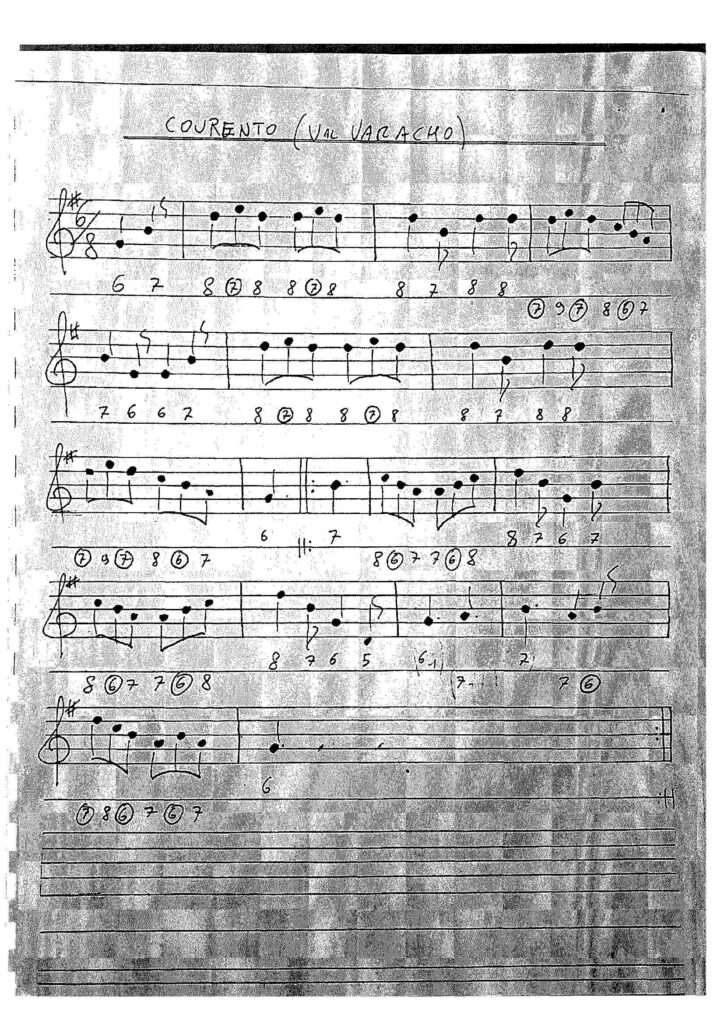 COURENTO (VAL VARACHO)
6/8
6 7 8 ⑦ 8 8 ⑦ 8 8 7 8 8
⑦ 9 ⑦ 8 ⑥ 7
7 6 6 7 8 ⑦ 8 8 ⑦ 8 8 7 8 8
6 7 8 7 6 7
⑦ 9 ⑦ 8 ⑥ 7 8 ⑥ 7 7 ⑥ 8
8 7 6 5 6 7
8 ⑥ 7 7 ⑥ 8 7 7 ⑥
6
⑦ 8 ⑥ 7 ⑥ 7